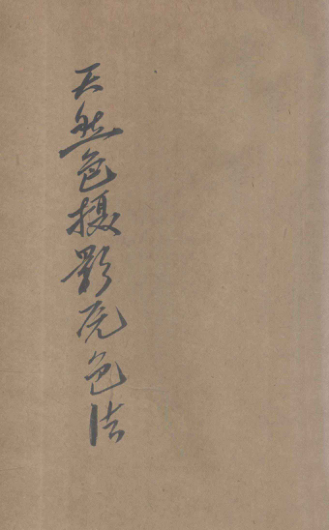 天然色摄影原色法